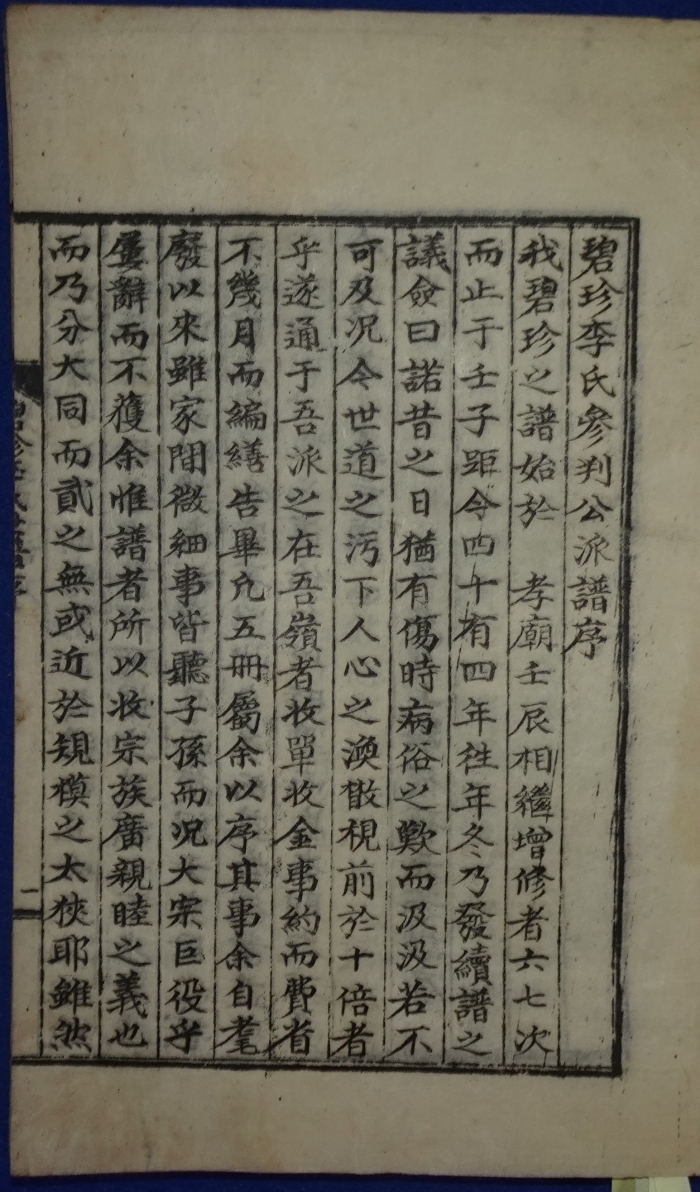 碧珍李氏參判公派譜序
我碧珍之譜始於　孝廟壬辰相繼增修者六七次
而止于壬子距今四十有四年往年冬乃發續譜之
議僉曰諾昔之日猶有傷時病俗之歎而汲汲若不
可及况今世道之汚下人心之渙散視前於十倍者
乎遂通于吾派之在吾嶺者收單收金事約而費省
不幾月而編繕告畢凢五冊屬余以序其事余自耄
廢以來雖家間微細事皆聽子孫而况大宗巨役乎
屢辭而不獲余惟譜者所以收宗族廣親睦之義也
而乃分大同而貳之無或近於規模之太狹耶雖然
一